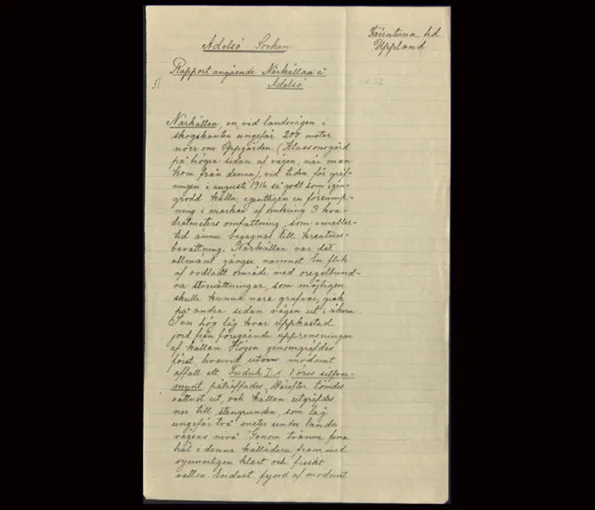 Adelsö Socken
Färentuna hd.
Uppland
Rapport angående Närkällan å
Adelsö
Närkällan, en vid landsvägen i
skogskanten ungefär 200 meter
norr om Uppgården (Klassonsgård
på högra sidan af vägen, när man
kom från denna), vid tiden för gräf-
ningen i augusti 1916 så godt som igen-
grodd källa, egentligen en försump-
ning i marken af omkring 3 kva-
dratmeters omfattning, som emeller-
tid ännu begagnas till kreaturs-
bevattning. Närkällan var det
allmänt gängse namnet. En flik
af oodladt område med oregelbund-
na stensättningar, som möjligen
skulle kunna vara grafvar, gick
på andra sidan vägen ut i åkern.
I en hög låg kvar uppkastad
jord från föregående upprensningar
af källan. Högen genomgräfdes
först hvarvid utom modernt
affall ett Fredrik I:s 1 öres silfver-
mynt påträffades. Därefter tömdes
vattnet ut, och källan utgräfdes
ner till stengrunden, som låg
ungefär två meter under lands
vägens nivå. Genom tvänne fina
hål i denna källådern fram med
synnerligen klart och friskt
vatten. Endast fynd af modernt